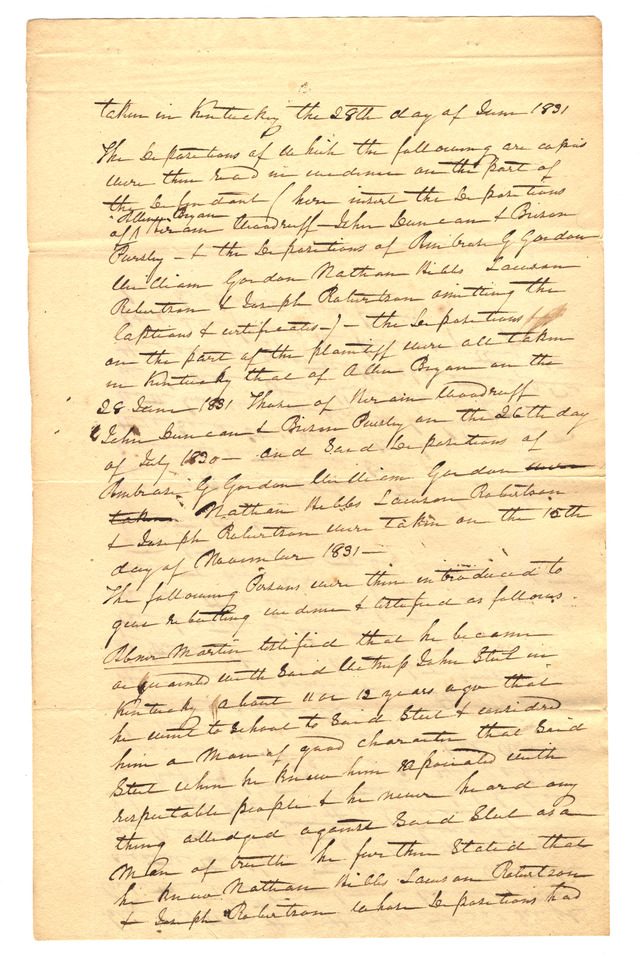 taken in Kentucky the 28th day of June 1831
The Depositions of which the following are copies
were then read in evidence on the part of
the Defendant (here insert the Depositions
Allen Bryan
of Hiram Woodruff John Duncan & Brison
Pursley - & the Depositions of Ambrose G Gordon
William Gordon Nathan Hibbs Lawson
Robertson & Joseph Robertson omitting the
Captions & certificates -) - the Depositions
on the part of the plaintiff were all taken
in Kentucky that of Allen Bryan on the
28 June 1831 Those of Hiram Woodruff
John Duncan & Brison Pursley on the 26th day
of July 1830 - and said Depositions of
Ambrose G Gordon William Gordon were
taken Nathan Hibbs Lawson Robertson
& Joseph Robertson were taken on the 15th
day of November 1831 -
The following Persons were then introduced to
give rebutting evidence & testified as follows.
Abner Martin testified that he became
acquainted with said Witness John Steel in
Kentucky about 11 or 12 years ago that
he went to school to said Steel & considered
him a Man of good character that said
Steel when he knew him associated with
respectable people & he never heard any
thing alledged against said Steel as a
Man of truth he further stated that
he knew Nathan Hibbs Lawson Robertson
& Joseph Robertson whose Depositions had